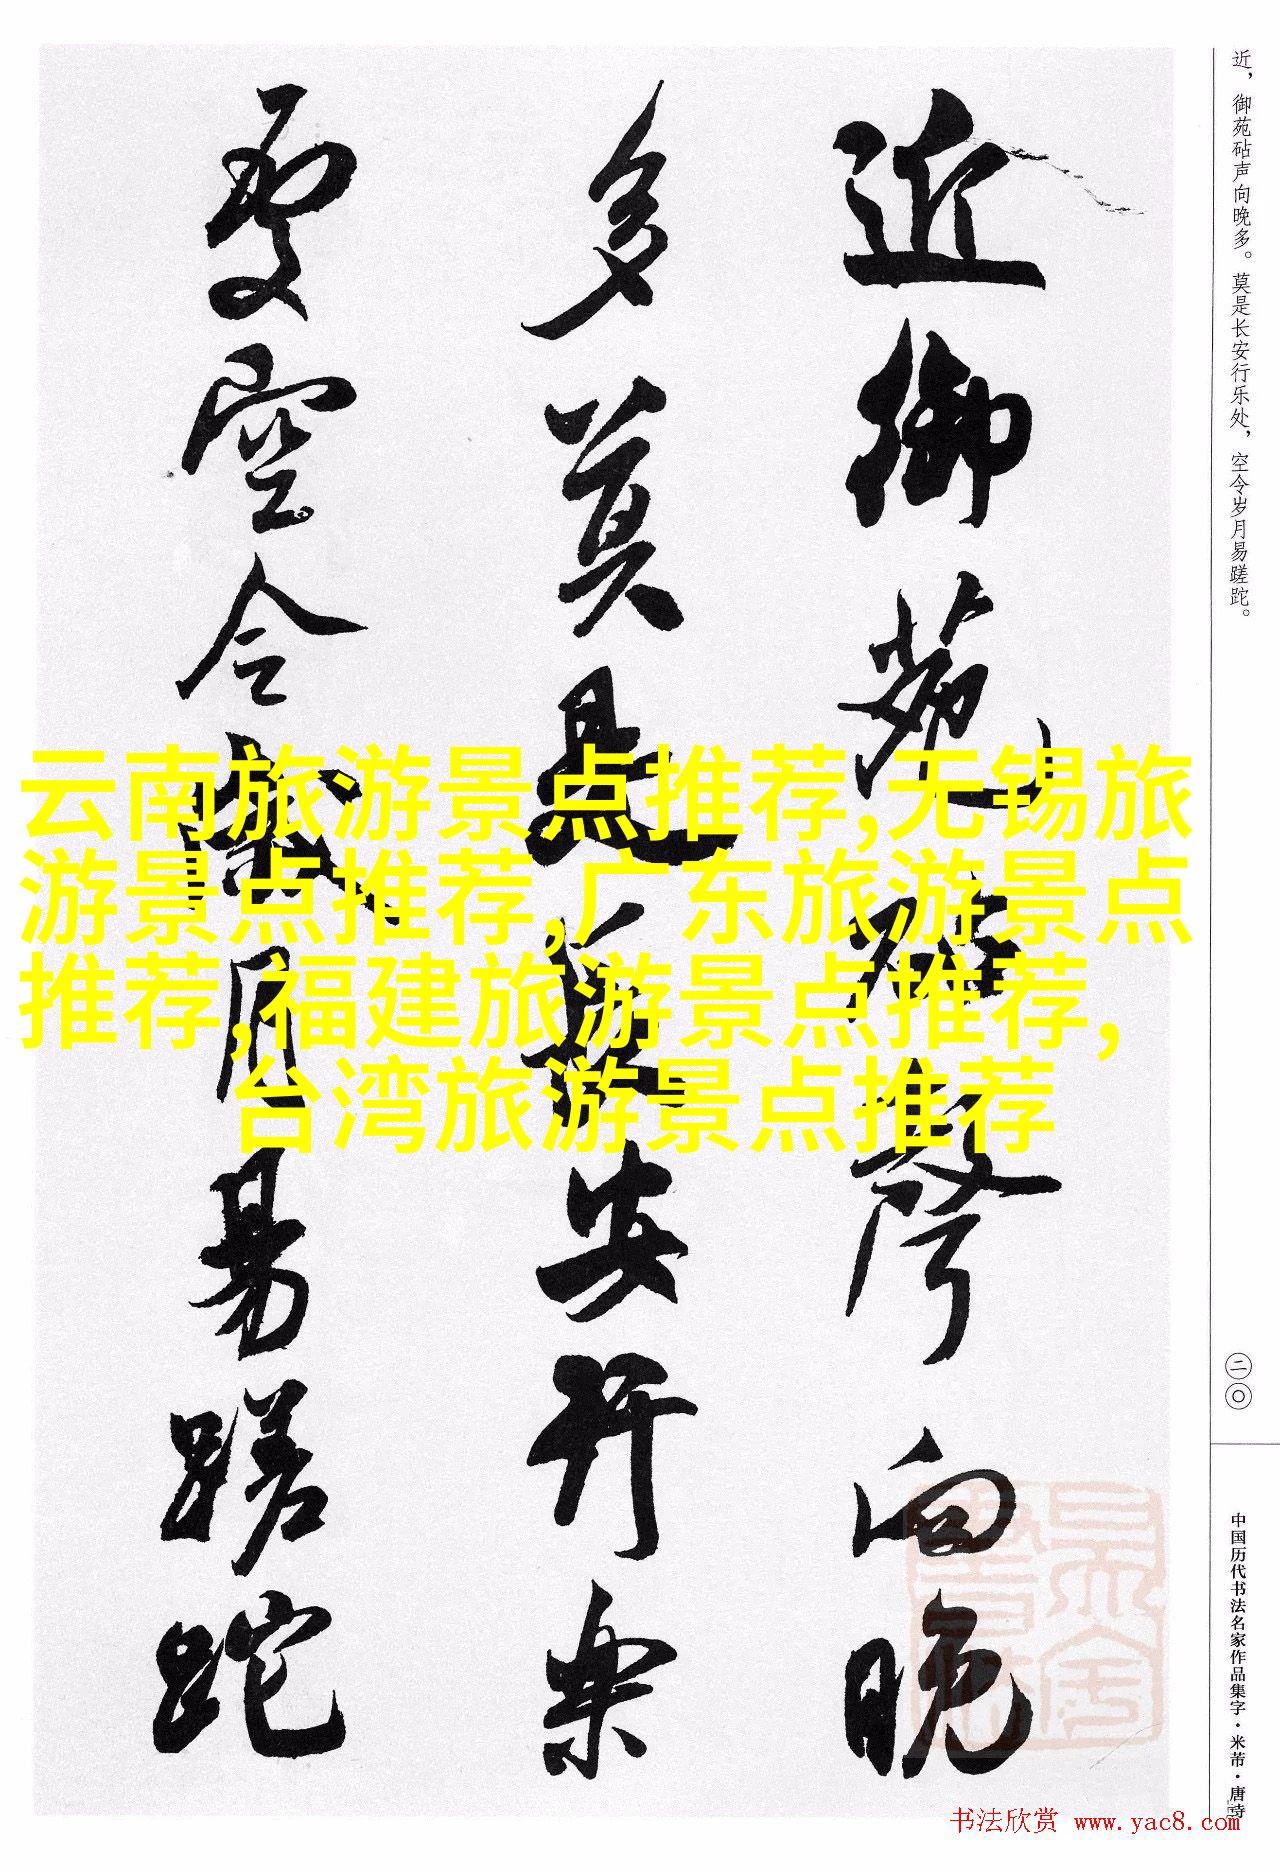 近御苑砧声向晚
多莫是长安行乐
处空令岁月易蹉跎
近，御苑砧声向晚多。莫是长安行乐处，空令岁月易蹉跎。
二〇
中国历代书法名家作品集字·米芾·唐诗
云南旅游景点推荐,无锡旅
游景点推荐,广东旅游景点
推荐,福建旅游景点推荐,
台湾旅游景点推荐
书法欣赏 www.yac8.com